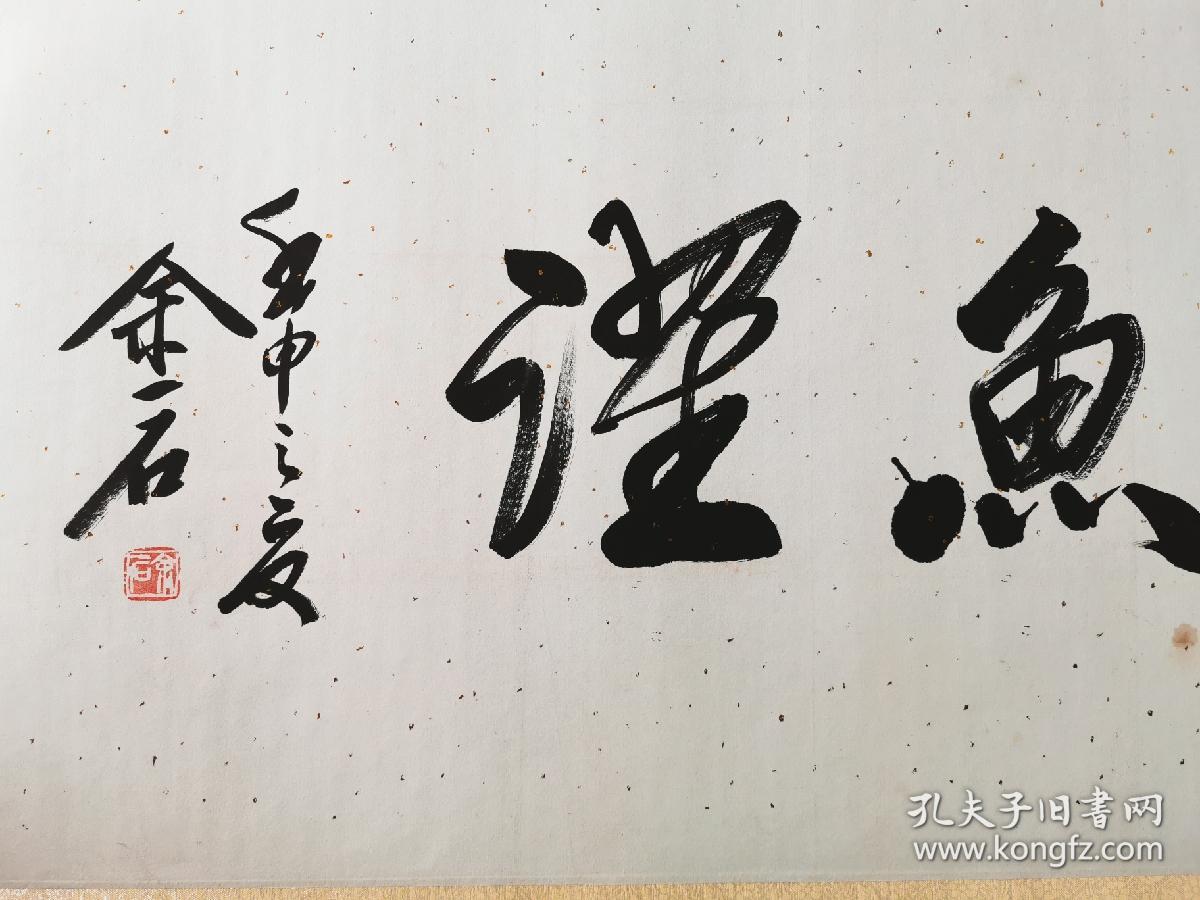 魚躍
壬申之夏
余石
余石
孔夫子旧書网
www.kongfz.com